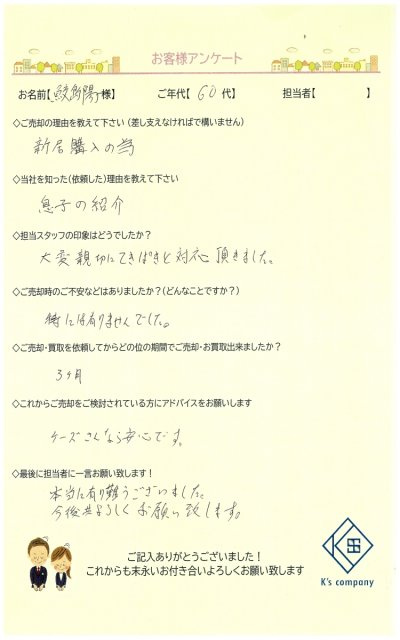 お客様アンケート
お名前【 様】 ご年代【 60 代】 担当者【 】
◇ご売却の理由を教えて下さい (差し支えなければで構いません)
新居購入の為
◇当社を知った(依頼した)理由を教えて下さい
息子の紹介
◇担当スタッフの印象はどうでしたか？
大変親切にてきぱきと対応頂きました。
◇ご売却時のご不安などはありましたか？(どんなことですか？)
特には有りませんでした。
◇ご売却・買取を依頼してからどの位の期間でご売却・お買取出来ましたか？
3ヶ月
◇これからご売却をご検討されている方にアドバイスをお願いします
ケーズさんなら安心です。
◇最後に担当者に一言お願い致します！
本当に有り難うございました。
今後共よろしくお願い致します。
ご記入ありがとうございました！
これからも末永いお付き合いよろしくお願い致します
K's company